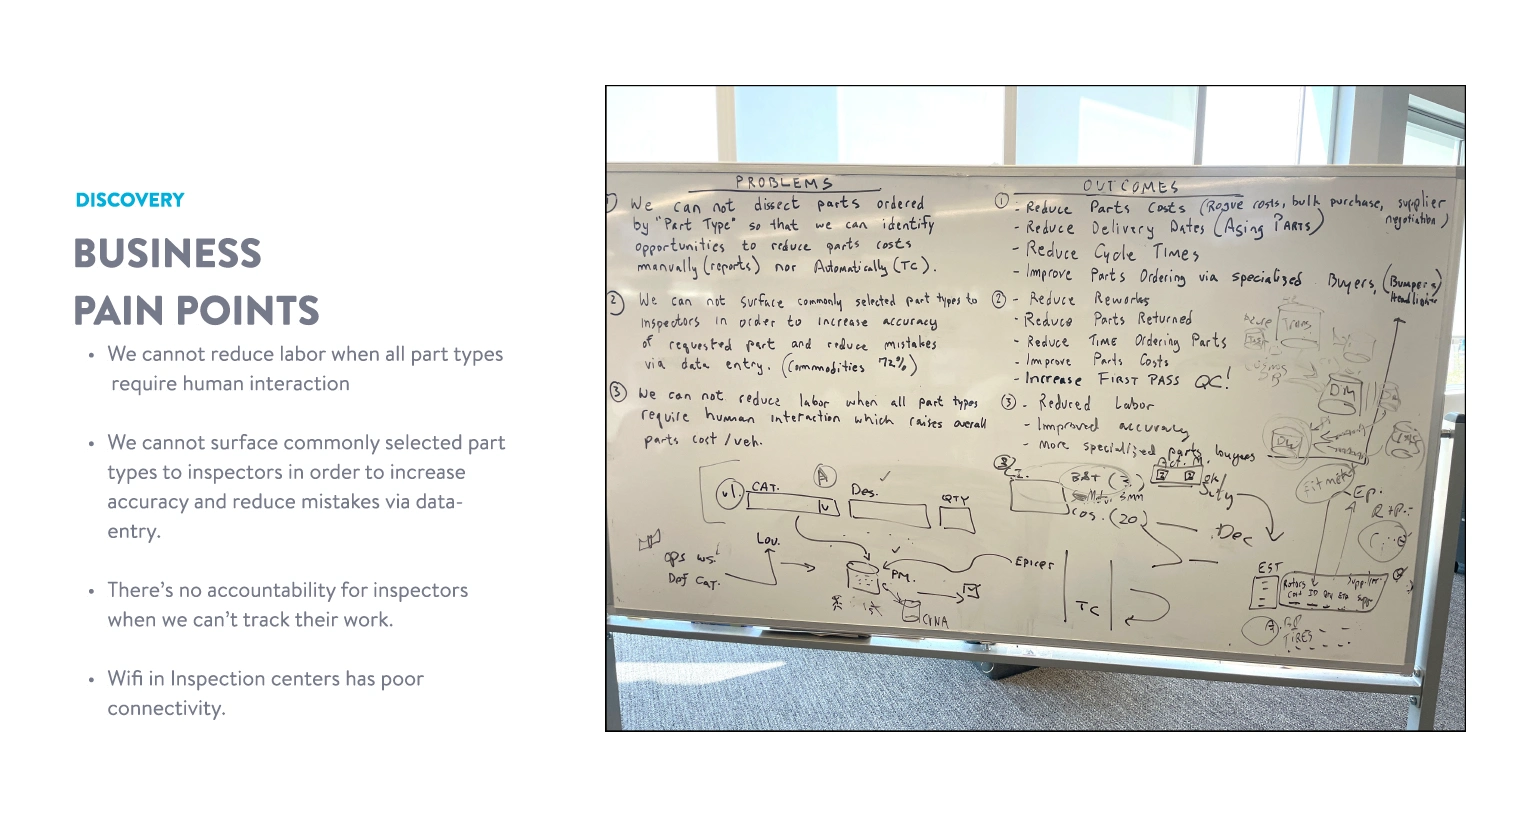 DISCOVERY
BUSINESS
PAIN POINTS
• We cannot reduce labor when all part types
require human interaction
• We cannot surface commonly selected part
types to inspectors in order to increase
accuracy and reduce mistakes via data-
entry.
• There's no accountability for inspectors
when we can't track their work.
• Wifi in Inspection centers has poor
connectivity.
PROBLEMS
1) We can not dissect parts ordered
by "Part Type" so that we can identify
opportunities to reduce parts costs
manually (reports) nor Automatically (TC).
2) We can not surface commonly selected part types to
inspectors in order to increase accuracy
of requested part and reduce mistakes
via data entry. (Commodities 72%)
3) We can not reduce labor when all part types
require human interaction which raises overall
parts cost/veh.
OUTCOMES
1 - Reduce Parts Costs (Rogue costs, bulk purchase, supplier
negotiation)
- Reduce Delivery Dates (Aging PARTS)
- Reduce Cycle Times
- Improve Parts Ordering via specialized Buyers, (Bumpers
2 - Reduce Reworks
- Reduce Parts Returned
- Reduce TIME Ordering Parts
- Improve Parts Costs
- Increase FIRST PASS QC!
3 - Reduced Labor
- Improved accuracy
- More specialized parts buyers
v1. CAT.
A
Des.
QTY
Lou.
ops ws.
Def CAT.
PM.
Epicer
TC
I.
B&T (3)
Cos. (20)
Dec
Trans
DM
Ep.
EST
Rotors
Cost ID Qty ETA
supplier
TIRES